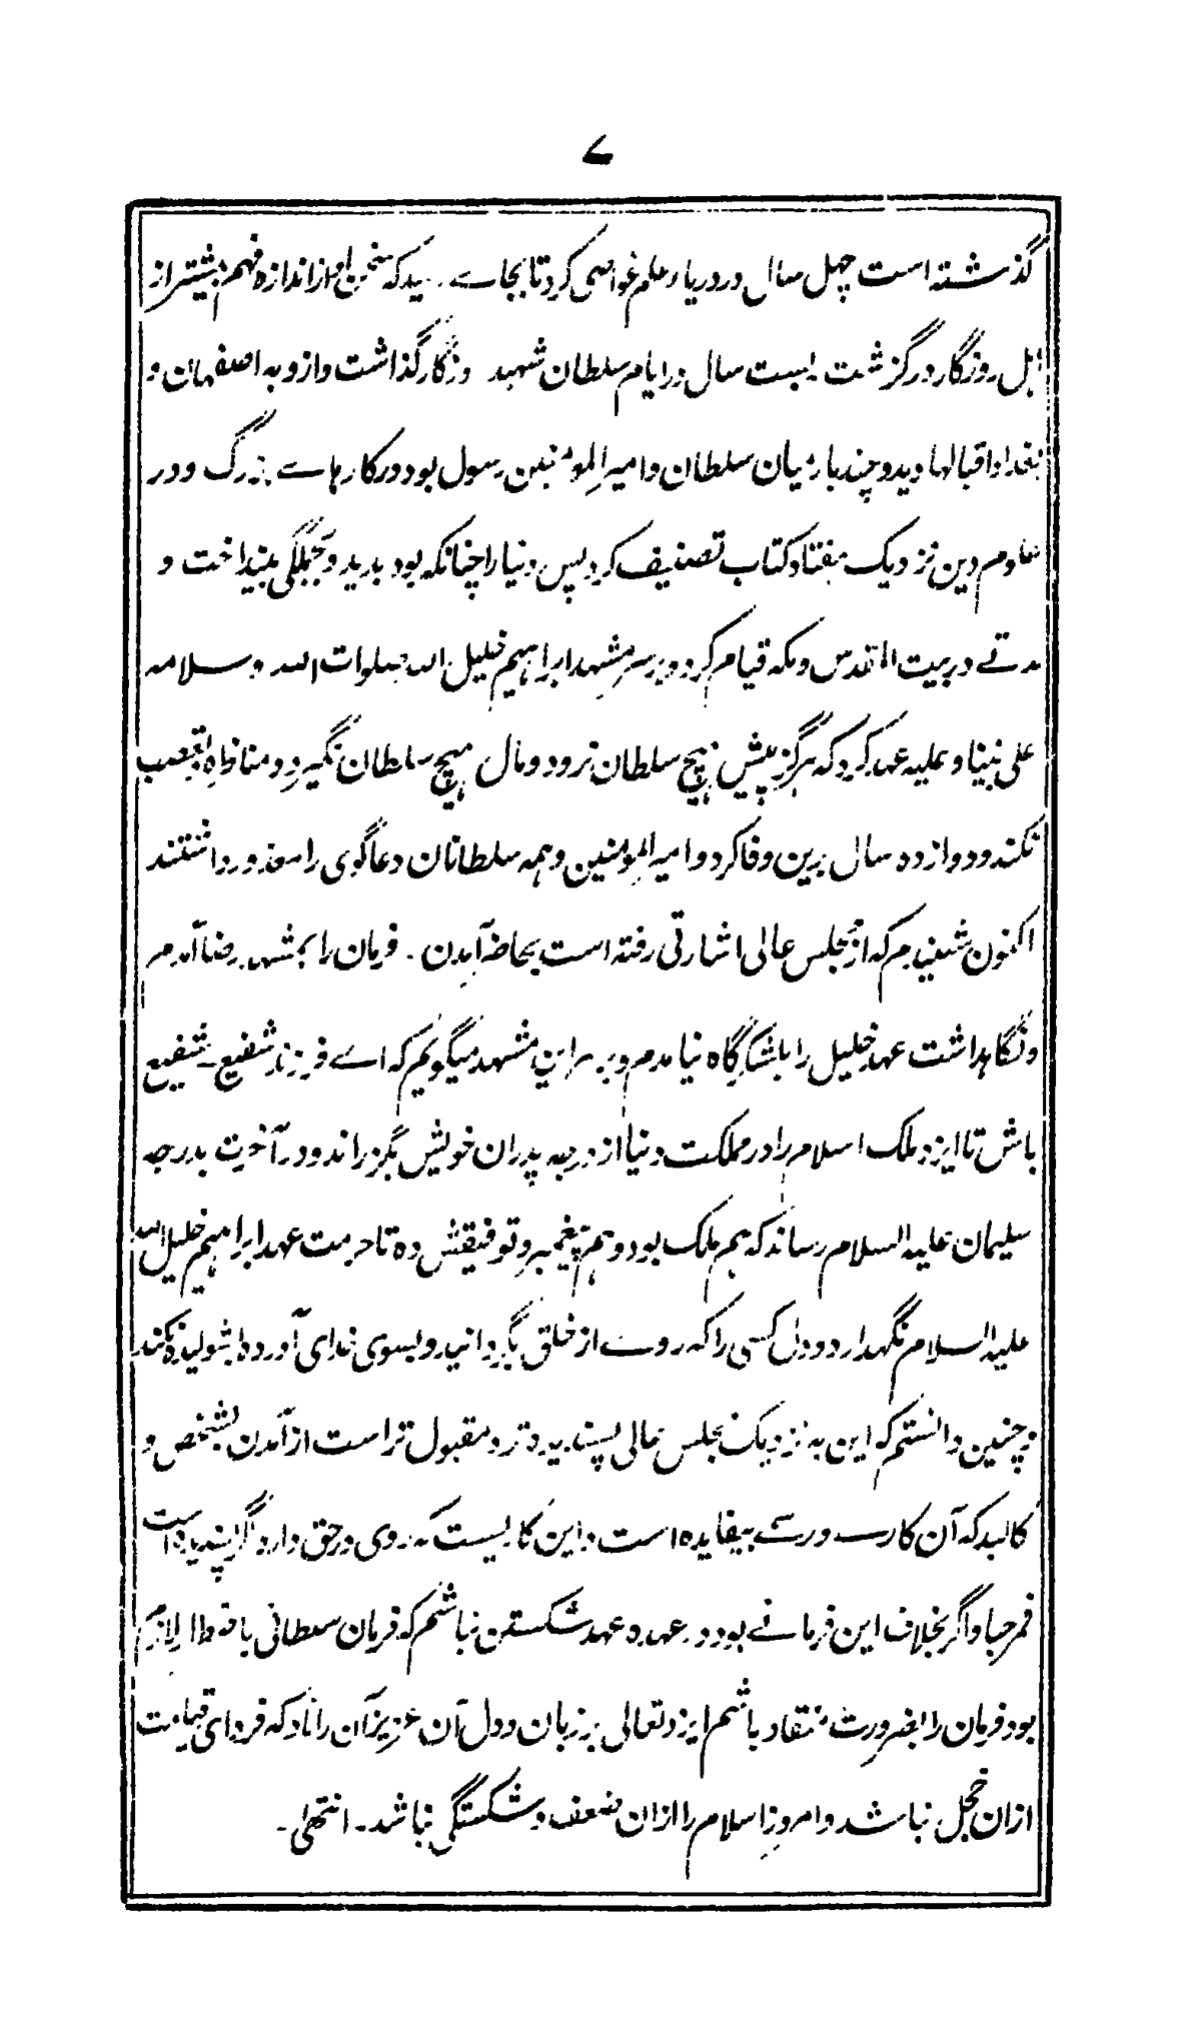 ۷
گذشته است چهل سال در دریاء علم غواصی کرد تا بجاے رسید که سخن او از اندازه فهم بیشتر از
اہل روزگار درگزشت بیست سال در ایام سلطان شہید روزگار گذاشت و ازو به اصفهان و
بغداد اقبالها دید و چند بار میان سلطان و امیرالمومنین رسول بود در کارہاے بزرگ و در
علوم دین نزدیک ہفتاد کتاب تصنیف کرد پس دنیا را چنانکه بود بدید و بجملگی بینداخت و
مدتے در بیت المقدس و مکه قیام کرد و بر سر مشہد ابراہیم خلیل الله صلوات الله و سلامه
علی نبینا و علیه عہد کرد که ہرگز پیش ہیچ سلطان نرود و مال ہیچ سلطان نگیرد و مناظره و تعصب
نکند و دوازده سال برین وفا کرد و امیرالمومنین و ہمه سلطانان دعاگوی را معذور داشتند
اکنون شنیدم که از مجلس عالی اشارتی رفته است بحاضر آمدن. فرمان را بمشہد رضا آمدم
و نگاہداشت عہد خلیل را بلشکرگاه نیامدم و بر سر این مشہد میگویم که اے فرزند شفیع شفیع
باش تا ایزد ملک اسلام را در مملکت دنیا از درجه پدران خویش بگزراند و در آخرت بدرجه
سلیمان علیه السلام رساند که ہم ملک بود و ہم پیغمبر و توفیقش ده تا حرمت عہد ابراہیم خلیل الله
علیه السلام نگہدارد و دل کسی را که روے از خلق بگردانید و بسوی خدای آورده بشولیده نکند
و چنین دانستم که این به نزدیک مجلس عالی پسندیده تر و مقبول تر است از آمدن بشخص و
کالبد که آن کارے ورسمے بیفایده است و این کاریست که روی در حق دارد اگر پسندیده است
فمرحبا و اگر بخلاف این فرمانے بود در عہده عہد شکستن نباشم که فرمان سلطانی باضطرار لازم
بود فرمان را بضرورت منقاد باشم ایزد تعالی بر زبان و دل آن عزیز آن راناد که فردای قیامت
ازان خجل نباشد و امروز اسلام را ازان ضعف و شکستگی نباشد۔ انتہیٰ۔